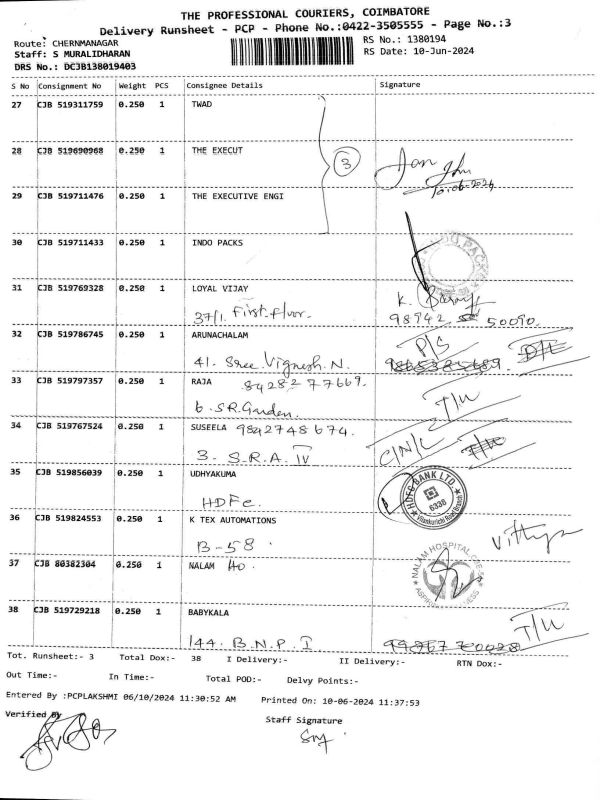 THE PROFESSIONAL COURIERS, COIMBATORE
Delivery Runsheet - PCP - Phone No.:0422-3505555 - Page No.:3
Route: CHERNMANAGAR
RS No.: 1380194
Staff: S MURALIDHARAN
RS Date: 10-Jun-2024
DRS No.: DCJB138019403
S No Consignment No Weight PCS Consignee Details Signature
27 CJB 519311759 0.250 1 TWAD
28 CJB 519690968 0.250 1 THE EXECUT
3
10.06.2024
29 CJB 519711476 0.250 1 THE EXECUTIVE ENGI
30 CJB 519711433 0.250 1 INDO PACKS
31 CJB 519769328 0.250 1 LOYAL VIJAY
37/1. First floor.
K.
98942 50090.
32 CJB 519786745 0.250 1 ARUNACHALAM
P/S
41. Sree Vignesh N.
9865385689. D/L
33 CJB 519797357 0.250 1 RAJA 84282 77669.
6. S.R. Garden.
T/W
34 CJB 519767524 0.250 1 SUSEELA 9842748674.
3. S.R.A IV
C/N/L
35 CJB 519856039 0.250 1 UDHYAKUMA
HDFC.
HDFC BANK LTD.
6330
36 CJB 519824553 0.250 1 K TEX AUTOMATIONS
B-58.
Vithya
37 CJB 80382304 0.250 1 NALAM Ho.
NALAM HOSPITAL
38 CJB 519729218 0.250 1 BABYKALA
144. B.N.P. I
T/W
Tot. Runsheet:- 3 Total Dox:- 38 I Delivery:- II Delivery:- RTN Dox:-
Out Time:- In Time:- Total POD:- Delvy Points:-
Entered By :PCPLAKSHMI 06/10/2024 11:30:52 AM Printed On: 10-06-2024 11:37:53
Verified By
Staff Signature